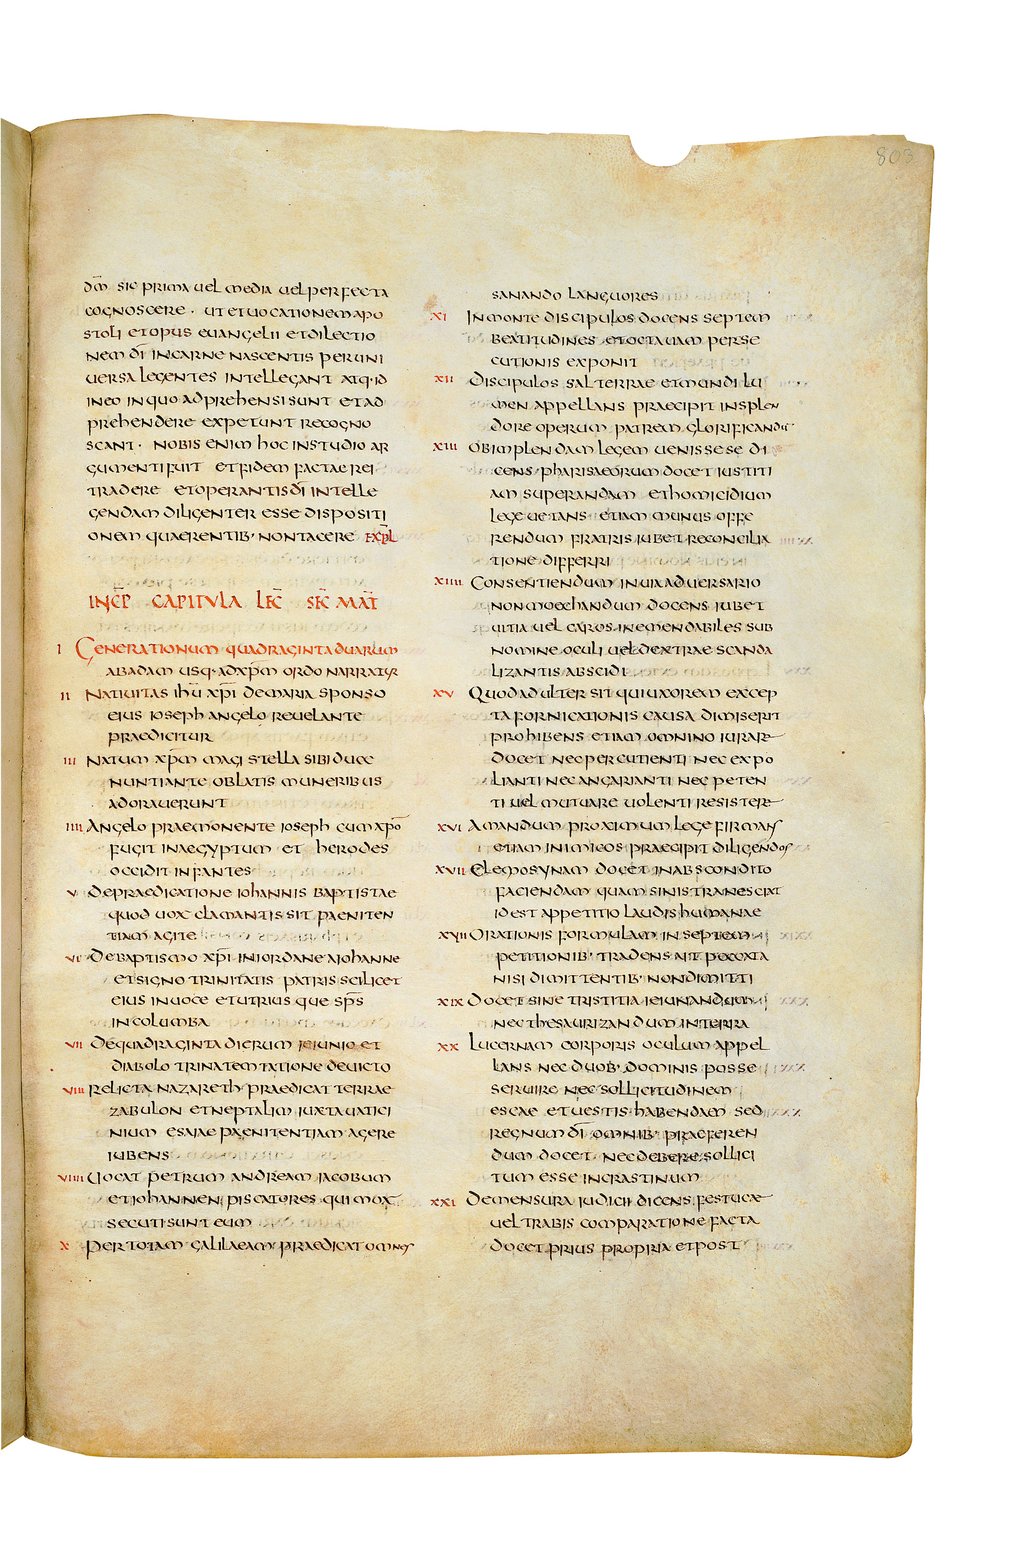 803
dm̄ sic prima uel media uel perfecta
cognoscere · ut et uocationem apo
stoli et opus euangelii et dilectio
nem dī in carne nascentis per uni
uersa legentes intellegant atq· id
in eo in quo adprehensi sunt et ad
prehendere expetunt recogno
scant · nobis enim hoc in studio ar
gumenti fuit et fidem factae rei
tradere et operantis dī intelle
gendam diligenter esse dispositi
onem quaerentib· non tacere expl̄
incp̄ capitula lec̄ sec̄ mat̄
i Generationum quadraginta duarum
ab adam usq· ad xp̄m ordo narratur
ii Natiuitas ihū xp̄i de maria sponso
eius ioseph angelo reuelante
praedicitur
iii Natum xp̄m magi stella sibi duce
nuntiante oblatis muneribus
adorauerunt
iiii Angelo praemonente ioseph cum xp̄o
fugit in aegyptum et herodes
occidit infantes
v De praedicatione iohannis baptistae
quod uox clamantis sit paeniten
tiam agite
vi De baptismo xp̄i in iordane a iohanne
et signo trinitatis patris scilicet
eius in uoce et utriusque sp̄s
in columba
vii De quadraginta dierum ieiunio et
diabolo trina temtatione deuicto
viii Relicta nazareth praedicat terrae
zabulon et neptalim iuxta uatici
nium esaiae paenitentiam agere
iubens
viiii Uocat petrum andream iacobum
et iohannen piscatores qui mox
secuti sunt eum
x Per totam galilaeam praedicat omnes
sanando languores
xi In monte discipulos docens septem
beatitudines et octauam perse
cutionis exponit
xii Discipulos sal terrae et mundi lu
men appellans praecipit in splen
dore operum patrem glorificandum
xiii Ob implendam legem uenisse se di
cens pharisaeorum docet iustiti
am superandam et homicidium
lege uetans etiam munus offe
rendum fratris iubet reconcilia
tione differri
xiiii Consentiendum in uia aduersario
non moechandum docens iubet
uitia uel caros inemendabiles sub
nomine oculi uel dextrae scanda
lizantis abscidi
xv Quod adulter sit qui uxorem excep
ta fornicationis causa dimiserit
prohibens etiam omnino iurare
docet nec percutienti nec expo
lianti nec angarianti nec peten
ti uel mutuare uolenti resistere
xvi Amandum proximum lege firmans
etiam inimicos praecipit diligendos
xvii Elemosynam docet in abscondito
faciendam quam sinistra nesciat
id est appetitio laudis humanae
xviii Orationis formulam in septem
petitionib· tradens ait peccata
nisi dimittentib· non dimitti
xix Docet sine tristitia ieiunandum
nec thesaurizandum in terra
xx Lucernam corporis oculum appel
lans nec duob· dominis posse
seruire nec sollicitudinem
escae et uestis habendam sed
regnum dī omnib· praeferen
dum docet nec debere sollici
tum esse in crastinum
xxi De mensura iudicii dicens festucae
uel trabis comparatione facta
docet prius propria et post